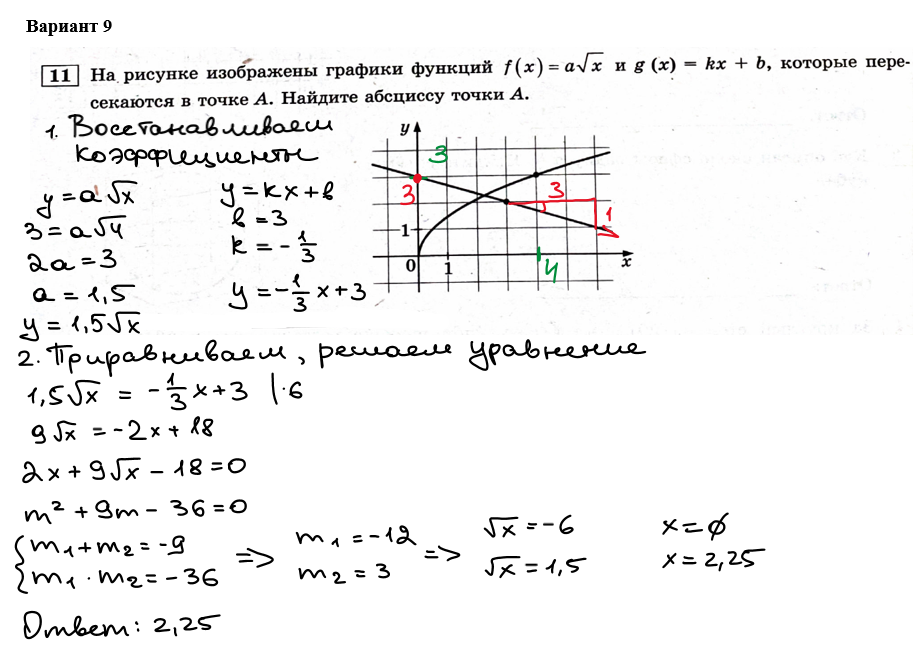 Вариант 9
11 На рисунке изображены графики функций f(x) = a√x и g(x) = kx + b, которые пере-
секаются в точке A. Найдите абсциссу точки A.
1. Восстанавливаем
коэффициенты
y = a√x
3 = a√4
2a = 3
a = 1,5
y = 1,5√x
y = kx + b
b = 3
k = -1/3
y = -1/3 x + 3
y
3
3
3
1
1
0
1
4
x
2. Приравниваем, решаем уравнение
1,5√x = -1/3 x + 3 |·6
9√x = -2x + 18
2x + 9√x - 18 = 0
m² + 9m - 36 = 0
{ m₁ + m₂ = -9
{ m₁ · m₂ = -36
=> m₁ = -12
m₂ = 3
=> √x = -6
√x = 1,5
x = ∅
x = 2,25
Ответ: 2,25